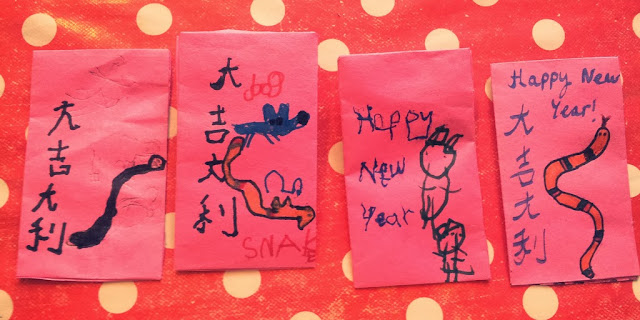 大吉大利
大吉大利
dog
SNAKE
Happy
New
Year
Happy New
Year!
大吉大利